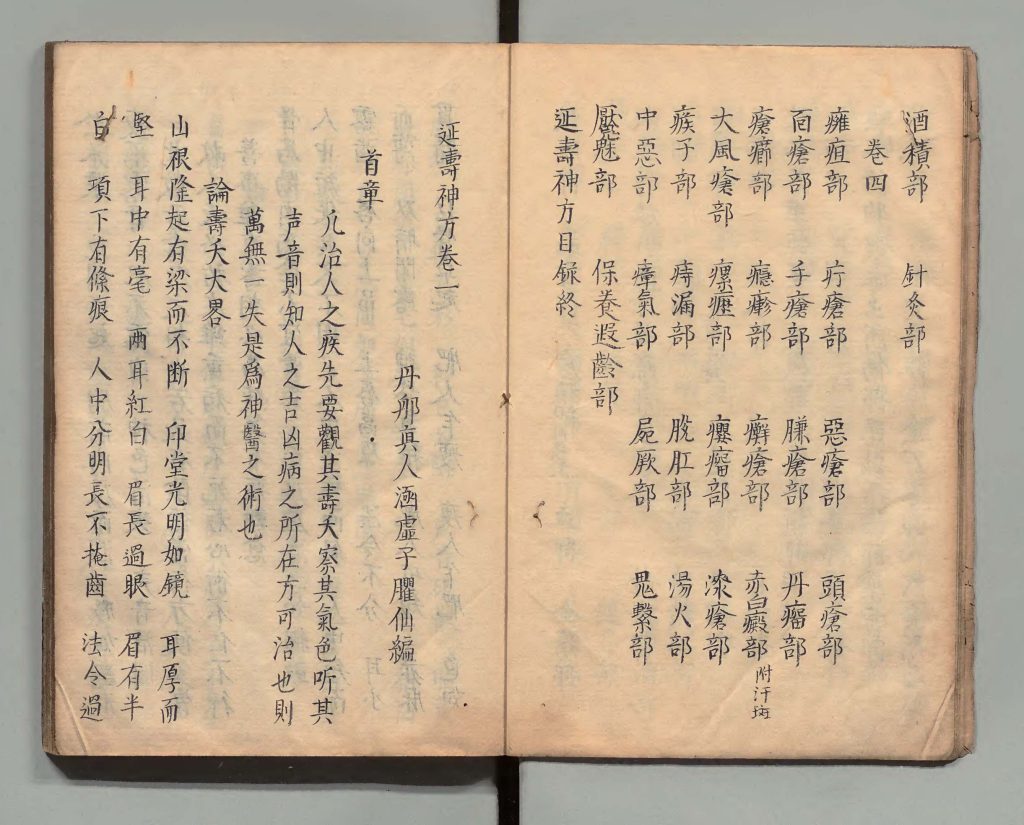 酒積部 針灸部
卷四
癰疽部 疔瘡部 惡瘡部 頭瘡部
百瘡部 手瘡部 臁瘡部 丹瘤部
瘡癤部 癮疹部 癬瘡部 赤白癜部 附汗斑
大風瘡部 瘰癧部 癭瘤部 漆瘡部
痎子部 痔漏部 脫肛部 湯火部
中惡部 瘴氣部 屍厥部 鬼繫部
魘魅部 保養遐齡部
延壽神方目錄終
延壽神方卷一
丹邱真人涵虛子臞仙編
首章
凡治人之疾先要觀其壽夭察其氣色听其
声音則知人之吉凶病之所在方可治也則
萬無一失是爲神醫之術也
論壽夭大畧
山根隆起有梁而不断 印堂光明如镜 耳厚而
堅 耳中有毫 両耳紅白 眉長過眼 眉有半
白 項下有條痕 人中分明長不掩齒 法令過